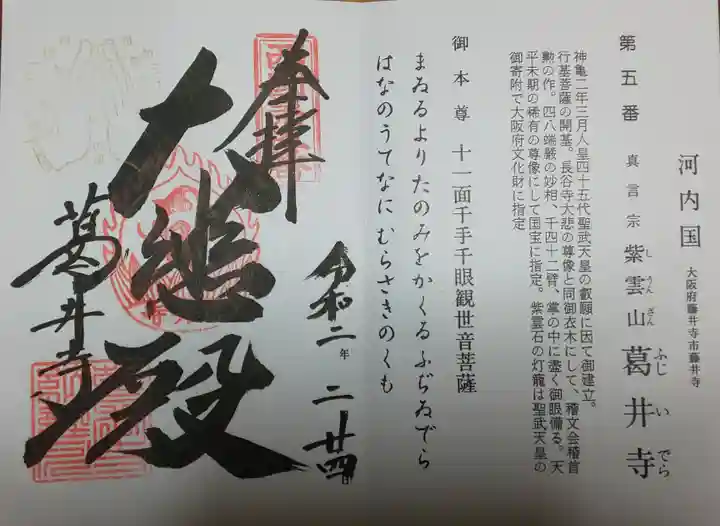 河内国
大阪府藤井寺市藤井寺
第五番 真言宗 紫雲山 葛井寺
し うん ざん
ふじ い でら
神亀二年三月人皇四十五代聖武天皇の叡願に因て御建立。
行基菩薩の開基。長谷寺大悲の尊像と同御衣木にして、稽文会稽首
勲の作。四八端厳の妙相、千四十二臂、掌の中に盡く御眼備る。天
平末期の稀有の尊像にして国宝に指定。紫雲石の灯籠は聖武天皇の
御寄附で大阪府文化財に指定
御本尊 十一面千手千眼観世音菩薩
まゐるよりたのみをかくるふぢゐでら
はなのうてなにむらさきのくも
奉拝
令和二年 二 廿四日
大悲殿
葛井寺